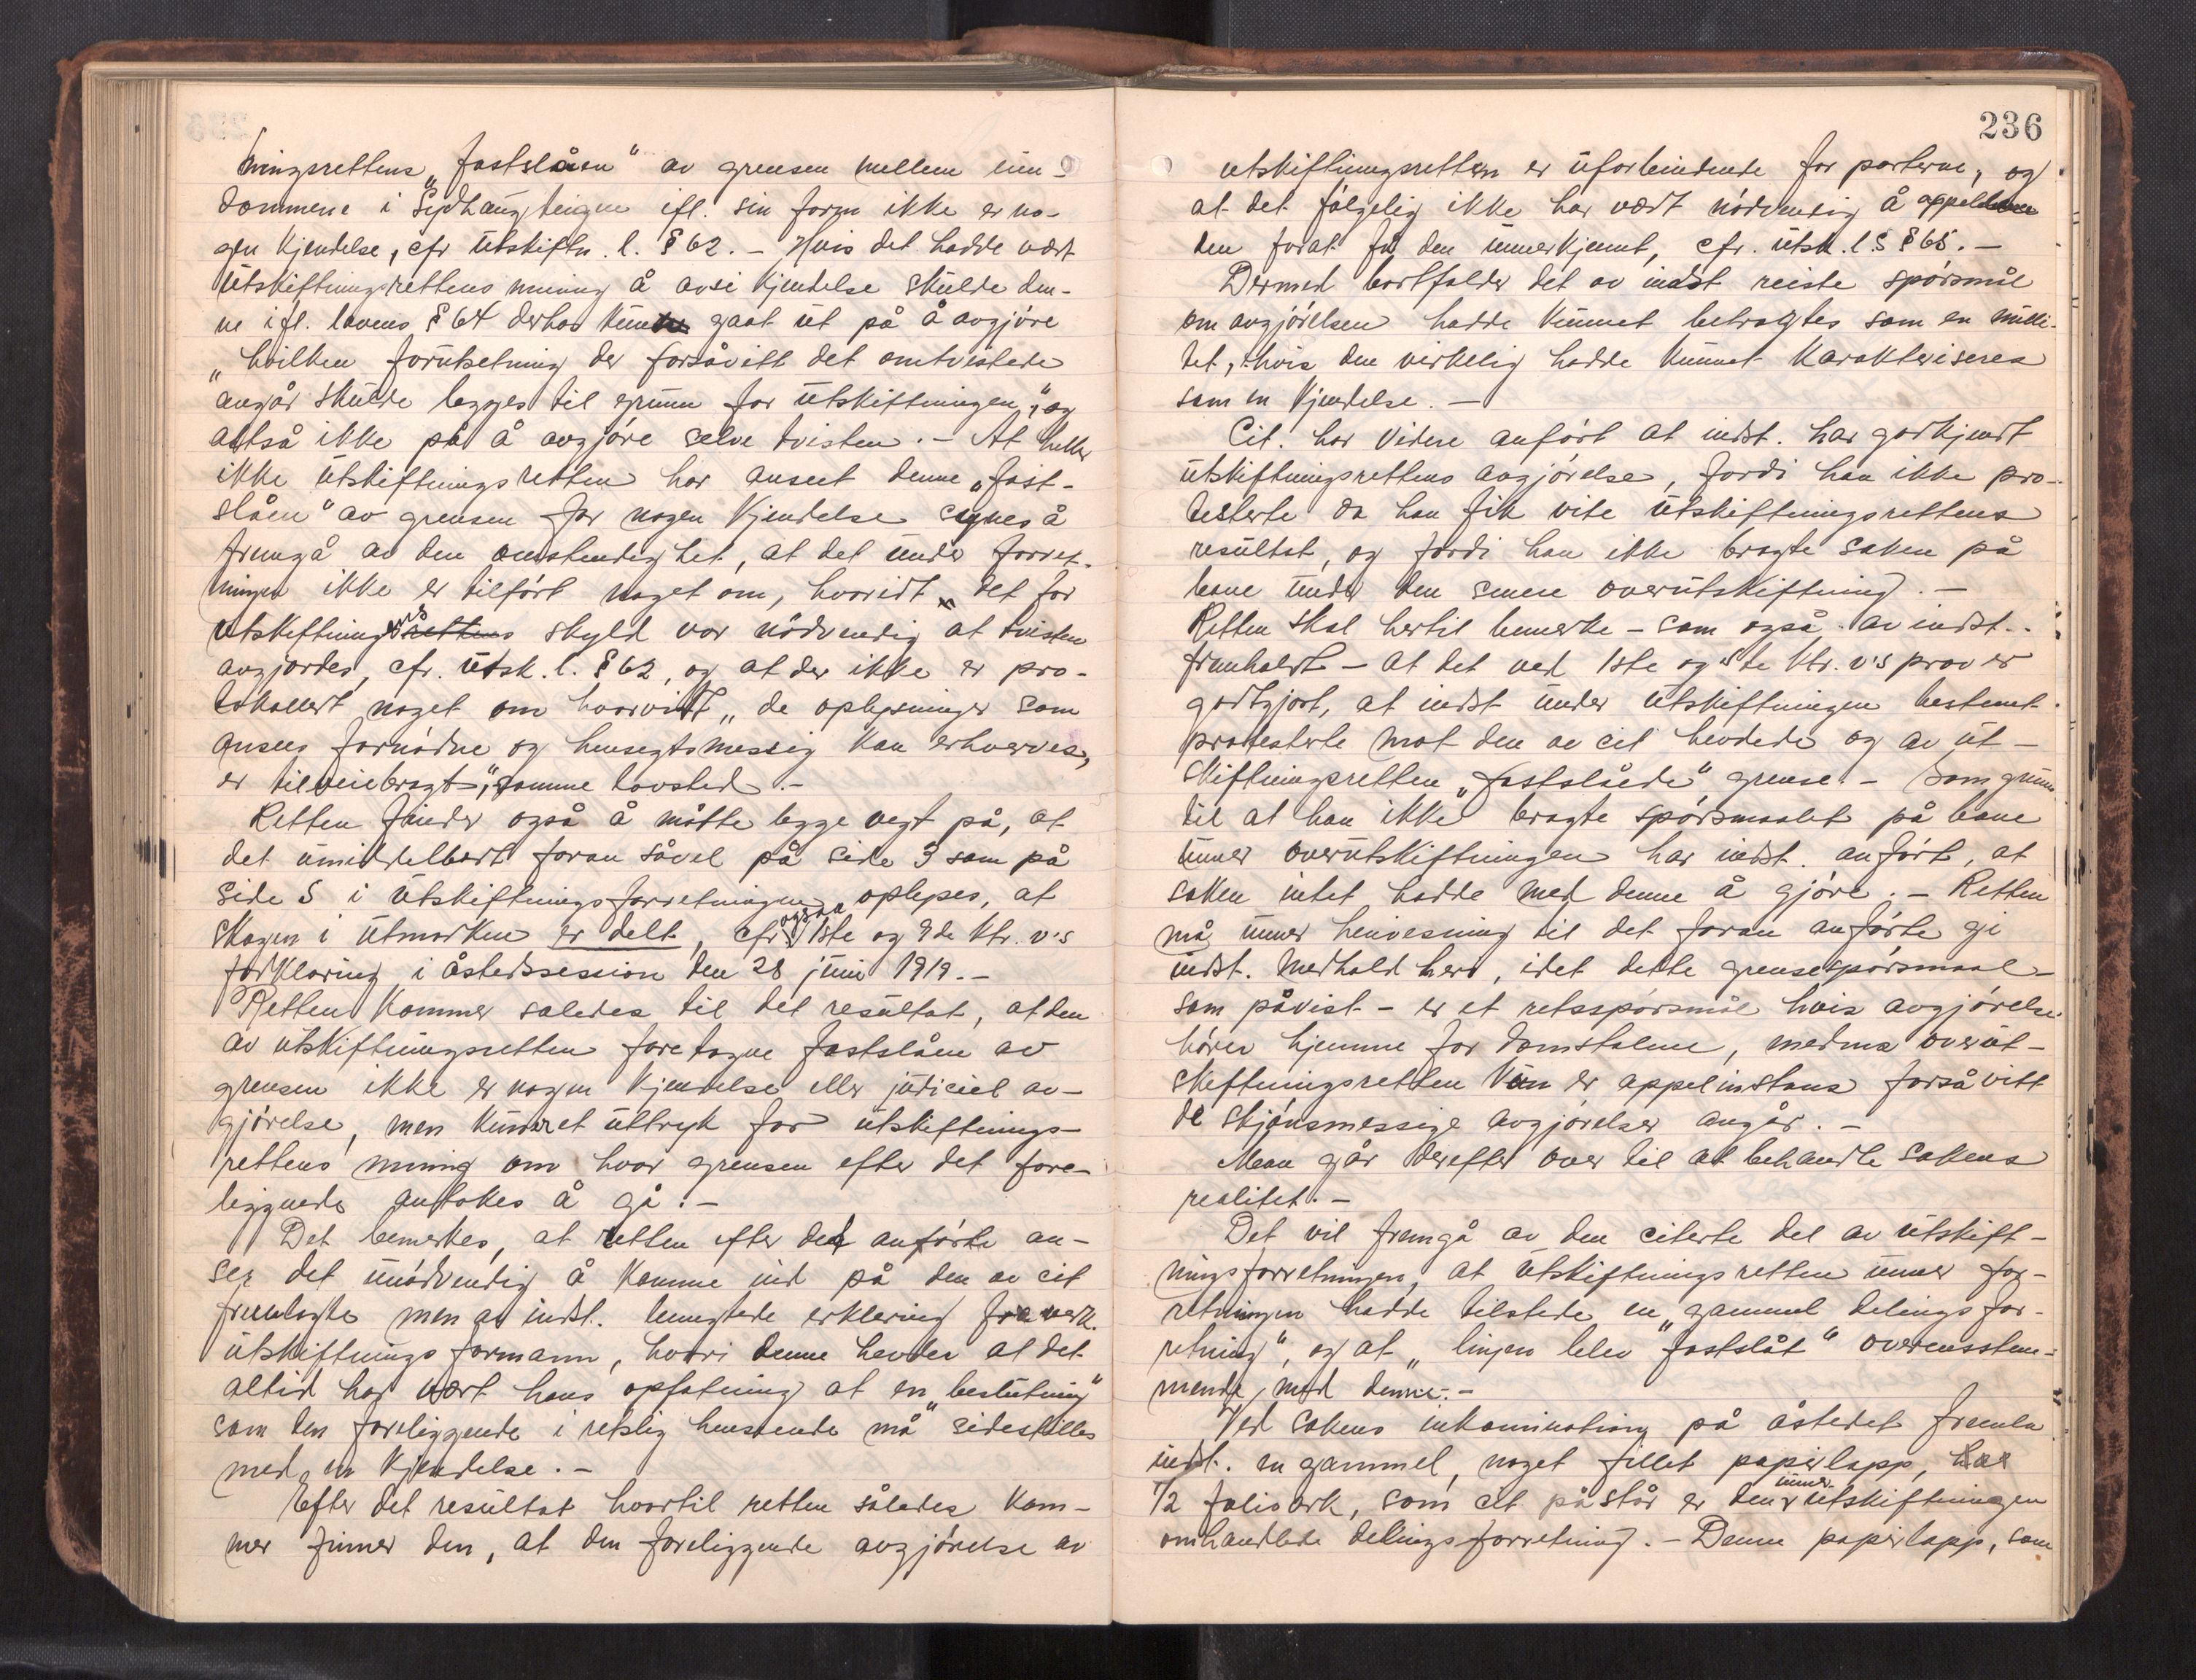 ningsrettens „fastslåen“ av grensen mellem ein-
dommene i Sydhaugteigen ifl. sin form ikke er no-
gen kjendelse, cfr utskiftn. l. § 62. – Hvis det hadde vært
utskiftningsrettens mening å avsi kjendelse skulde den-
ne ifl. lovens § 64 derhos kun gaat ut på å avgjöre
„hvilken forutsetning der forsåvitt det omtvistede
angår skulde legges til grunn for utskiftningen“, og
altså ikke på å avgjöre selve tvisten. – At heller
ikke utskiftningsretten har anseet denne „fast-
slåen“ av grensen for nogen kjendelse synes å
fremgå av den omstendighet, at det under forret-
ningen ikke er tilfört noget om, hvorvidt det for
utskiftningens skyld var nödvendig at tvisten
avgjordes, cfr. utsk. l. § 62, og at der ikke er pro-
tokollert noget om hvorvidt „de oplysninger som
ansees fornödne og hensegtsmessig kan erhverves,
er tilveiebragt“, samme lovsted. –
Retten finder også å måtte legge vegt på, at
det umiddelbart foran såvel på side 3 som på
side 5 i utskiftningsforretningen oplyses, at
skogen i utmarken er delt, cfr ogsaa 1ste og 2de ktr. v's
forklaring i åstedssession den 28 juni 1919. –
Retten kommer saledes til det resultat, at den
av utskiftningsretten foretagne fastslåen av
grensen ikke er nogen kjendelse eller judiciel av-
gjörelse, men kun et uttryk for utskiftnings-
rettens mening om hvor grensen efter det fore-
liggende antokes å gå. –
Det bemerkes, at retten efter det anförte an-
ser det unödvendig å komme ind på den av cit
fremlagte men av indst. benegtede erklering fra verk.
utskiftningsformann, hvori denne hevder at det
altid har vært hans opfatning at en „beslutning“
som den foreliggende i retslig henseende må „sidestilles
med en kjendelse. –
Efter det resultat hvortil retten således kom-
mer finner den, at den foreliggende avgjörelse av
236
utskiftningsretten er uforbindende for parterne, og
at det fölgelig ikke har vært nödvendig å appellere
den forat få den underkjennt, cfr. utsk. l.s § 65. –
Dermed bortfalder det av indst reiste spörsmål
om avgjörelsen hadde kunnet betragtes som en nulli-
tet, hvis den virkelig hadde kunnet karakteriseres
som en kjendelse. –
Cit. har videre anfört at indst. har godkjendt
utskiftningsrettens avgjörelse, fordi han ikke pro-
testerte da han fik vite utskiftningsrettens
resultat, og fordi han ikke bragte saken på
bane under den senere overutskiftning. –
Retten skal hertil bemerke – som også av indst.
fremholdt – at det ved 1ste og 5te ktr. v's prov er
godtgjort, at indst under utskiftningen bestemt
protesterte mot den av cit hevdede og av ut-
skiftningsretten „fastslåede“ grense. – Som grunn
til at han ikke bragte spörsmaalet på bane
under overutskiftningen har indst. anfört, at
saken intet hadde med denne å gjöre. – Retten
må under henvisning til det foran anförte gi
indst. medhold heri, idet dette grensespörsmaal –
som påvist – er et retsspörsmål hvis avgjörelse
hörer hjemme for domstolene, medens overut-
skiftningsretten kun er appelinstans forsåvitt
de skjönsmessige avgjörelser angår. –
Man går derefter over til at behandle sakens
realitet. –
Det vil fremgå av den citerte del av utskift-
ningsforretningen, at utskiftningsretten under for-
retningen hadde tilstede en „gammel delingsfor-
retning“, og at „linjen blev „fastslåt“ overensstem-
mende med denne. –
Ved sakens inkamination på åstedet fremla
indst. en gammel, noget fillet papirlapp,
1/2 folioark, som cit påstår er den under utskiftningen
omhandlede delingsforretning. – Denne papirlapp, som